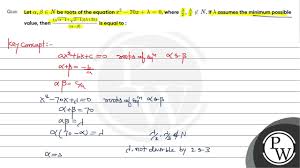 Let α, β ∈ N be roots of the equation x² − 70x + λ = 0, where λ/2, λ/3 ∉ N. If λ assumes the minimum possible
value, then (√(α−1)+√(β−1))(λ+35) / |α−β| is equal to :
Key Concept:-
ax²+bx+c=0 roots of eqⁿ α & β
α+β = -b/a
αβ = c/a
x²-70x+λ=0 roots of eqⁿ α & β
α+β = 70
αβ = λ
α(70-α) = λ
λ/2, λ/3 ∉ N
λ not divisible by 2 & 3
PW